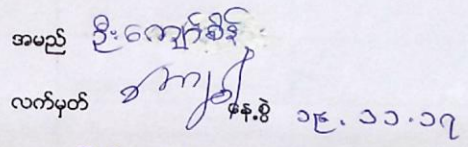 အမည် ဦးကျော်စိန်
လက်မှတ် နေ့စွဲ ၁၉.၁၁.၁၇